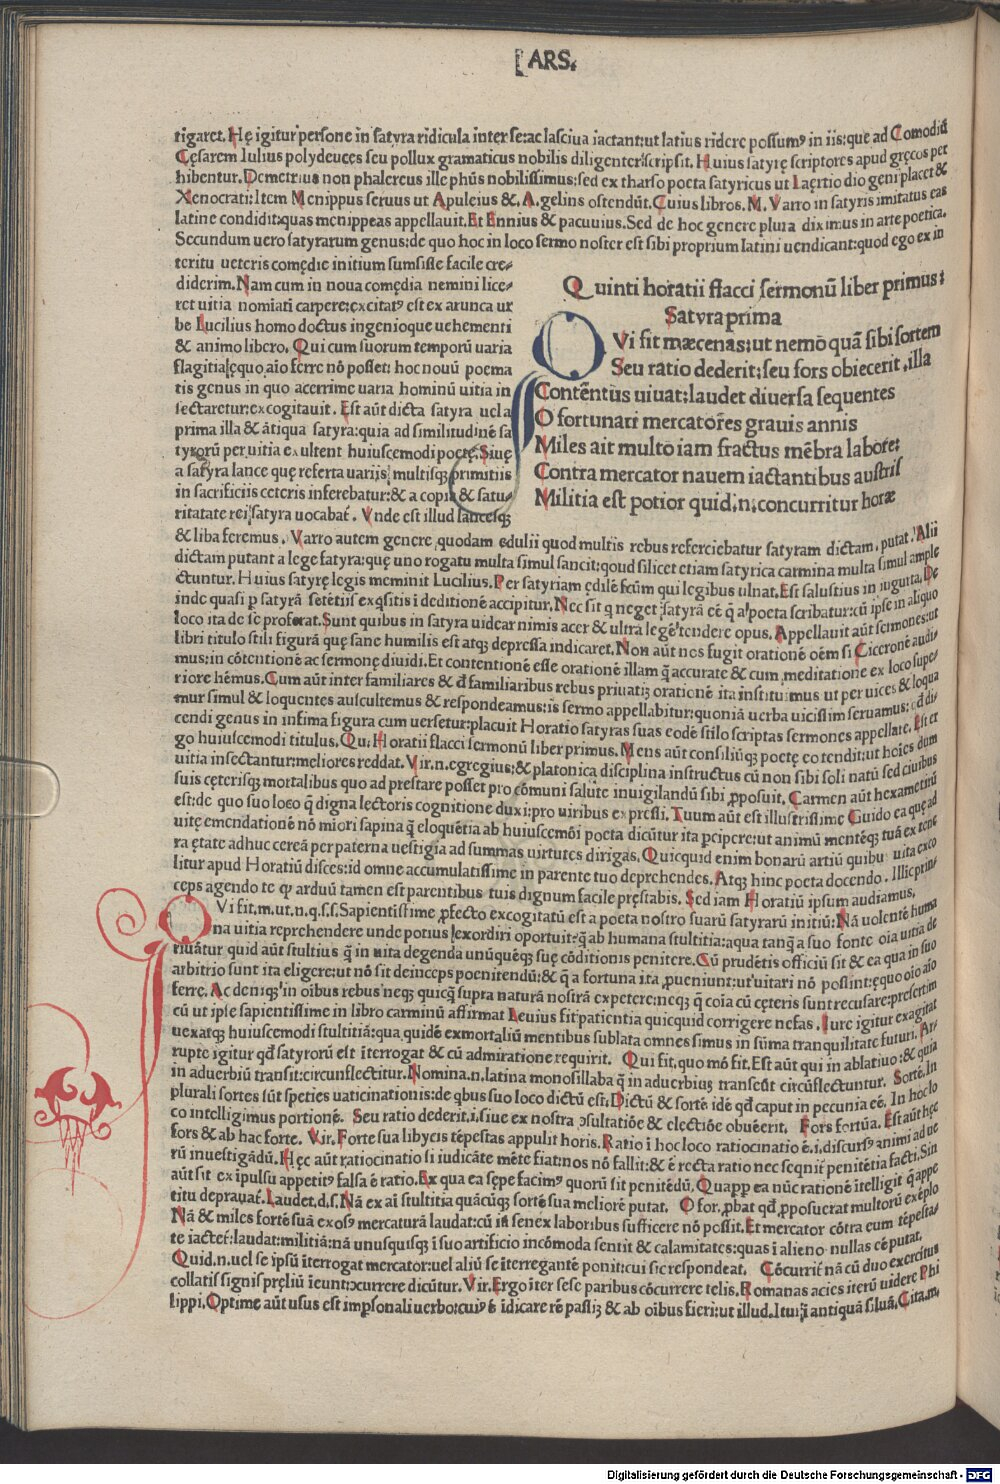 ARS.
tigaret. Hę igitur persone in satyra ridicula inter se: ac lasciua iactant: ut latius ridere possumꝰ in iis: que ad Comodiũ
Cęsarem Iulius polydeuces seu pollux gramaticus nobilis diligenter scripsit. Huius satyrę scriptores apud gręcos per
hibentur. Demetrius non phalereus ille phũs nobilissimus: sed ex tharso poeta satyricus ut Laertio dio geni placet &
Xenocrati: Item Menippus seruus ut Apuleius & .A. gelius ostendũt. Cuius libros .M. Varro in satyris imitatus eas
latine condidit: quas menippeas appellauit. Et Ennius & pacuuius. Sed de hoc genere plura diximus in arte poetica.
Secundum uero satyrarum genus: de quo hoc in loco sermo noster est sibi proprium latini uendicant: quod ego ex in
teritu ueteris comędie initium sumsisse facile cre-
diderim. Nam cum in noua comędia nemini lice-
ret uitia nomiati carpere: excitatꝰ est ex arunca ur
be Lucilius homo doctus ingenioque uehementi
& animo libero. Qui cum suorum temporũ uaria
flagitia ęquo aio ferre nõ posset: hoc nouũ poema
tis genus in quo acerrime uaria hominũ uitia in
sectaretur: excogitauit. Est aũt dicta satyra uel a
prima illa & ãtiqua satyra: quia ad similitudinẽ sa
tyrorũ per uitia exultent huiuscemodi poetę. Siue
a satyra lance quę referta uariis multisq; primitiis
in sacrificiis ceteris inferebatur: & a copia & satu-
ritatate rei satyra uocabat̃. Vnde est illud lancesq;
Quinti horatii flacci sermonũ liber primus:
Satyra prima
QVi fit mæcenas: ut nemo quã sibi sortem
Seu ratio dederit: seu fors obiecerit . illa
Contẽtus uiuat: laudet diuersa sequentes
O fortunati mercatores grauis annis
Miles ait multo iam fractus mẽbra labore:
Contra mercator nauem iactantibus austris
Militia est potior quid .n. concurritur horæ
& liba feremus. Varro autem genere quodam edulii quod multis rebus referciebatur satyram dictam. putat. Alii
dictam putant a lege satyra: quę uno rogatu multa simul sancit: qoud silicet etiam satyrica carmina multa simul ample
ctuntur. Huius satyrę legis meminit Lucilius. Per satyriam ędilẽ fc̃um qui legibus ulnat. Est salustius in iugurta. De
inde quasi p satyrã setẽtiis exq̃sitis i deditionẽ accipitur. Nec sit q neget satyrã cẽ q̃ a poeta scribatur: cũ ipse in aliquo
loco ita de se proferat. Sunt quibus in satyra uidear nimis acer & ultra legẽ tendere opus. Appellauit aũt sermones: ut
libri titulo stili figurã quę sane humilis est atq; depressa indicaret. Non aũt nos fugit orationẽ oẽm si Ciceronẽ audi-
mus: in cõtentionẽ ac sermonẽ diuidi. Et contentionẽ esse orationẽ illam q̃ accurate & cum meditatione ex loco supe-
riore hẽmus. Cum aũt inter familiares & đ familiaribus rebus priuatis orationẽ ita instituimus ut per uices & loqua
mur simul & loquentes auscultemus & respondeamus: iis sermo appellabitur: quoniã uerba uicissim seruamus: cđ di-
cendi genus in infima figura cum uersetur: placuit Horatio satyras suas eodẽ stilo scriptas sermones appellare. Est er
go huiuscemodi titulus. Qui Horatii flacci sermonũ liber primus. Mens aũt consiliũq; poetę eo tendit: ut hoies dum
uitia insectantur: meliores reddat. Vir .n. egregius: & platonica disciplina instructus cũ non sibi soli natũ sed ciuibus
suis cęterisq; mortalibus quo ad prestare posset pro cõmuni salute inuigilandũ sibi ꝓposuit. Carmen aũt hexametrũ
est: de quo suo loco q̃ digna lectoris cognitione duxi: pro uiribus expressi. Tuum aũt est illustrissime Guido ea quę ad
uitę emendationẽ nõ miori sapina q̃ eloquẽtia ab huiuscemõi poeta dicũtur ita pcipere: ut animũ mentẽq; tuã ex tene
ra ętate adhuc cereã per paterna uestigia ad summas uirtutes dirigas. Quicquid enim bonarũ artiũ quibu uita exco
litur apud Horatiũ disces: id omne accumulatissime in parente tuo deprehendes. Atq; hinc poeta docendo. Illic prin
ceps agendo te qp arduũ tamen est parentibus tuis dignum facile pręstabis. Sed iam Horatiũ ipsum audiamus.
QVi fit .m. ut .n. q. s. s. Sapientissime ꝓfecto excogitatũ est a poeta nostro suarũ satyrarũ initiũ: Nã uolentẽ huma
na uitia reprehendere unde potius exordiri oportuit: q̃ ab humana stultitia: a qua tanq̃ a suo fonte oia uitia de
riuãtur quid aũt stultius q̃ in uita degenda unũquẽq; suę cõditionis penitere. Cũ prudẽtis officiũ sit & ea qua in suo
arbitrio sunt ita eligere: ut nõ sit deinceps poenitendũ: & q̃ a fortuna ita ꝓueniunt: ut uitari nõ possint: ęquo oio aio
ferre. Ac deniq; in oibus rebus neq; quicq̃ supra naturã nostrã expetere: neq; q̃ coia cũ cęteris sunt recusare: presertim
cũ ut ipse sapientissime in libro carminũ affirmat Leuius fit patientia quicquid corrigere nefas. Iure igitur exagitat
uexatq; huiuscemodi stultitiã: qua quidẽ ex mortaliũ mentibus sublata omnes simus in sũma tranquilitate futuri. Ar-
rupte igitur qđ satyrorũ est ĩterrogat & cũ admiratione requirit. Qui fit. quo mõ fit. Est aũt qui in ablatiuo: & quia
in aduerbiũ transit: circunflectitur. Nomina .n. latina monosillaba q̃ in aduerbius transeũt circũflectuntur. Sortẽ. In
plurali sortes sũt speties uaticinationis: de qbus suo loco dictũ est. Dictũ & sortẽ idẽ qđ caput in pecunia eẽ. In hoc lo
co intelligimus portionẽ. Seu ratio dederit .i. siue ex nostra ɔsultatiõe & electiõe obuẽerit. Fors fortũa. Est aũt hęc
fors & ab hac forte. Vir. Forte sua libycis tẽpestas appulit horis. Ratio ĩ hoc loco ratiocinatio ẽ .i. discursꝰ animi ad ue
rũ inuestigãdũ. Hęc aũt ratiocinatio si iudicãte mẽte fiat: nos nõ fallit: & ẽ recta ratio nec seqnir penitẽtia facti. Sin
aũt sit ex ipulsu appetitꝰ falsa ẽ ratio. Ex qua ea sępe facimꝰ quorũ sit penitẽdũ. Quaꝓp ea nũc rationẽ ĩtelligit q̃ appe
titu deprauat̃. Laudet .d. s. Nã ex aĩ stultitia quãcũq; sortẽ sua meliorẽ putat. O for. ꝓbat qđ ꝓposuerat multorũ exẽplo
Nã & miles fortẽ suã exosꝰ mercaturã laudat: cũ iã senex laboribus sufficere nõ possit. Et mercator cõtra eum tẽpesta-
te iactet̃: laudat: militiã: nã unusquisq; ĩ suo artificio incõmoda sentit & calamitates: quas ĩ alieno nullas cẽ putat.
Quid .n. uel se ipsũ ĩterrogat mercator: uel aliũ se ĩterregantẽ ponit: cui sic respondeat. Cõcurrit̃ nã cũ duo exercitus
collatis signis pręliũ ĩeunt: ɔcurrere dicũtur. Vir. Ergo ĩter sese paribus cõcurrere telis. Romanas acies iterũ uidere Phi
lippi. Optime aũt usus est impsonali uerbo: cuiꝰ ẽ ĩdicare rẽ passi; & ab oibus fieri: ut illud. Itur ĩ antiquã siluã. Cita.m.
Digitalisierung gefördert durch die Deutsche Forschungsgemeinschaft - DFG